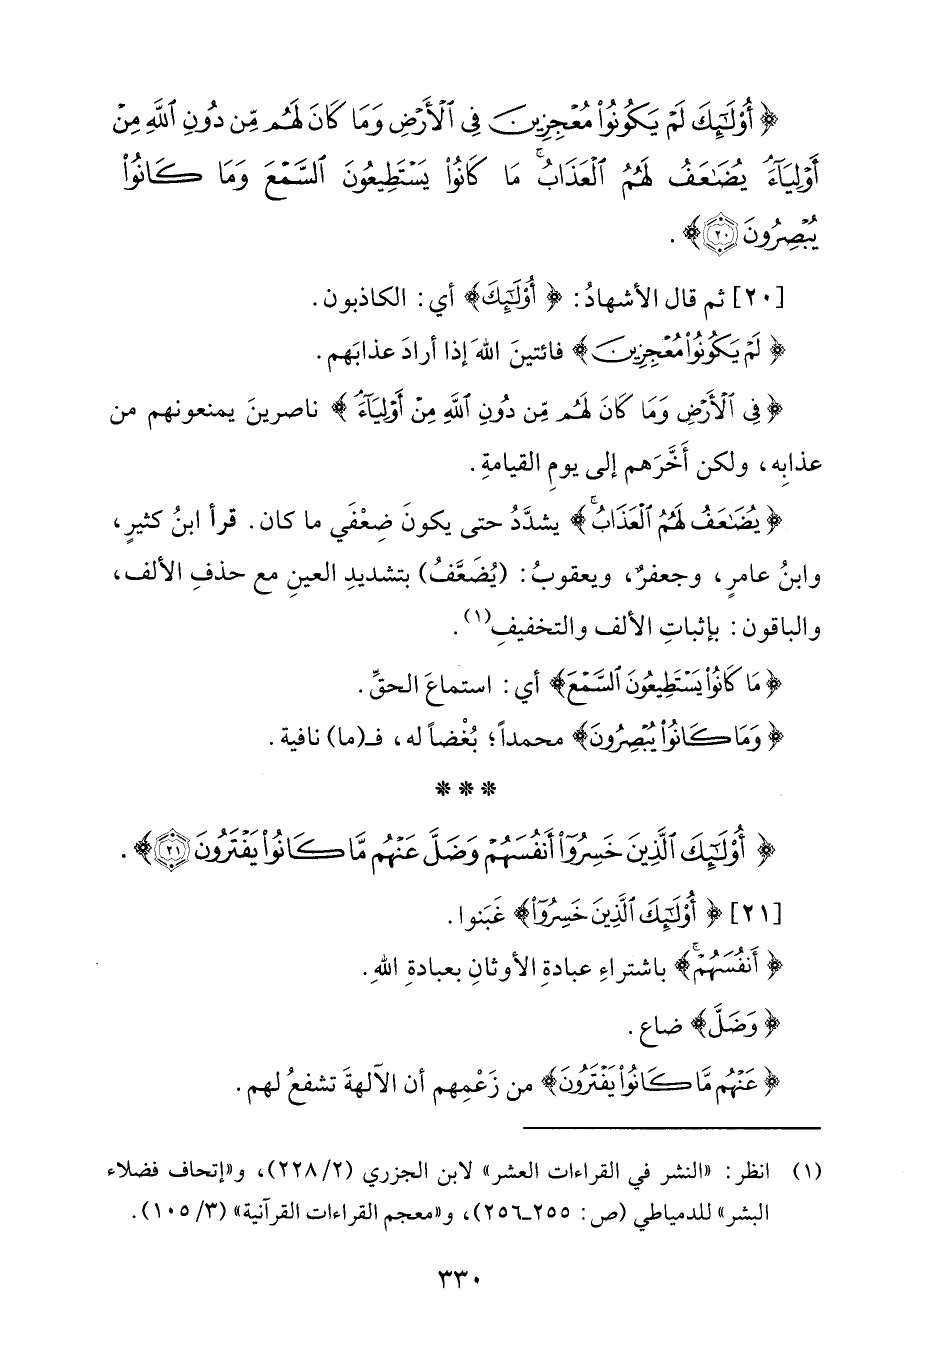 ﴿أُوْلَٰٓئِكَ لَمْ يَكُونُواْ مُعْجِزِينَ فِي ٱلْأَرْضِ وَمَا كَانَ لَهُم مِّن دُونِ ٱللَّهِ مِنْ
أَوْلِيَآءَ يُضَٰعَفُ لَهُمُ ٱلْعَذَابُ ۚ مَا كَانُواْ يَسْتَطِيعُونَ ٱلسَّمْعَ وَمَا كَانُواْ
يُبْصِرُونَ ۝٢٠﴾ .
[٢٠] ثم قال الأشهادُ: ﴿أُوْلَٰٓئِكَ﴾ أي: الكاذبون.
﴿لَمْ يَكُونُواْ مُعْجِزِينَ﴾ فائتينَ اللهَ إذا أرادَ عذابَهم.
﴿فِي ٱلْأَرْضِ وَمَا كَانَ لَهُم مِّن دُونِ ٱللَّهِ مِنْ أَوْلِيَآءَ﴾ ناصرينَ يمنعونهم من
عذابِه، ولكن أَخَّرَهم إلى يومِ القيامةِ.
﴿يُضَٰعَفُ لَهُمُ ٱلْعَذَابُ ۚ﴾ يشدَّدُ حتى يكونَ ضِعْفَي ما كان. قرأ ابنُ كثيرٍ،
وابنُ عامرٍ، وجعفرٌ، ويعقوبُ: (يُضَعَّفُ) بتشديدِ العينِ مع حذفِ الألف،
والباقون: بإثباتِ الألف والتخفيفِ(١).
﴿مَا كَانُواْ يَسْتَطِيعُونَ ٱلسَّمْعَ﴾ أي: استماعَ الحقِّ.
﴿وَمَا كَانُواْ يُبْصِرُونَ﴾ محمداً؛ بُغْضاً له، فـ(ما) نافية.
* * *
﴿أُوْلَٰٓئِكَ ٱلَّذِينَ خَسِرُوٓاْ أَنفُسَهُمْ وَضَلَّ عَنْهُم مَّا كَانُواْ يَفْتَرُونَ ۝٢١﴾ .
[٢١] ﴿أُوْلَٰٓئِكَ ٱلَّذِينَ خَسِرُوٓاْ﴾ غَبَنوا.
﴿أَنفُسَهُمْ ۚ﴾ باشتراءِ عبادةِ الأوثانِ بعبادةِ اللهِ.
﴿وَضَلَّ﴾ ضاع.
﴿عَنْهُم مَّا كَانُواْ يَفْتَرُونَ﴾ من زَعْمِهم أن الآلهةَ تشفعُ لهم.
(١) انظر: «النشر في القراءات العشر» لابن الجزري (٢/ ٢٢٨)، و«إتحاف فضلاء
البشر» للدمياطي (ص: ٢٥٥ـ٢٥٦)، و«معجم القراءات القرآنية» (٣/ ١٠٥).
٣٣٠